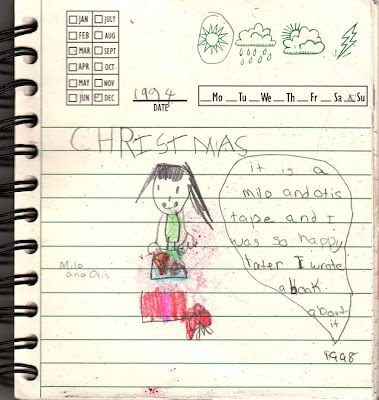 JAN JULY
FEB AUG
MAR SEPT
APR OCT
MAY NOV
JUN DEC
1994
DATE
Mo Tu We Th Fr Sa Su
CHRISTMAS
it is a
milo and otis
tape and I
was so happy
later I wrote
a book
about
it
1998
Milo
and Otis